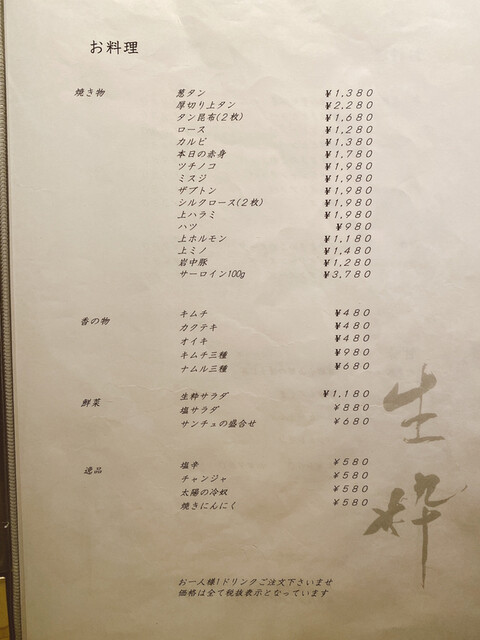 お料理
焼き物 葱タン ¥1,380
厚切り上タン ¥2,280
タン昆布(2枚) ¥1,680
ロース ¥1,280
カルビ ¥1,380
本日の赤身 ¥1,780
ツチノコ ¥1,980
ミスジ ¥1,980
ザブトン ¥1,980
シルクロース(2枚) ¥1,980
上ハラミ ¥1,980
ハツ ¥980
上ホルモン ¥1,180
上ミノ ¥1,480
岩中豚 ¥1,280
サーロイン100g ¥3,780
香の物 キムチ ¥480
カクテキ ¥480
オイキ ¥480
キムチ三種 ¥980
ナムル三種 ¥680
鮮菜 生粋サラダ ¥1,180
塩サラダ ¥880
サンチュの盛合せ ¥680
逸品 塩辛 ¥580
チャンジャ ¥580
太陽の冷奴 ¥580
焼きにんにく ¥580
生粋
お一人様1ドリンクご注文下さいませ
価格は全て税抜表示となっています